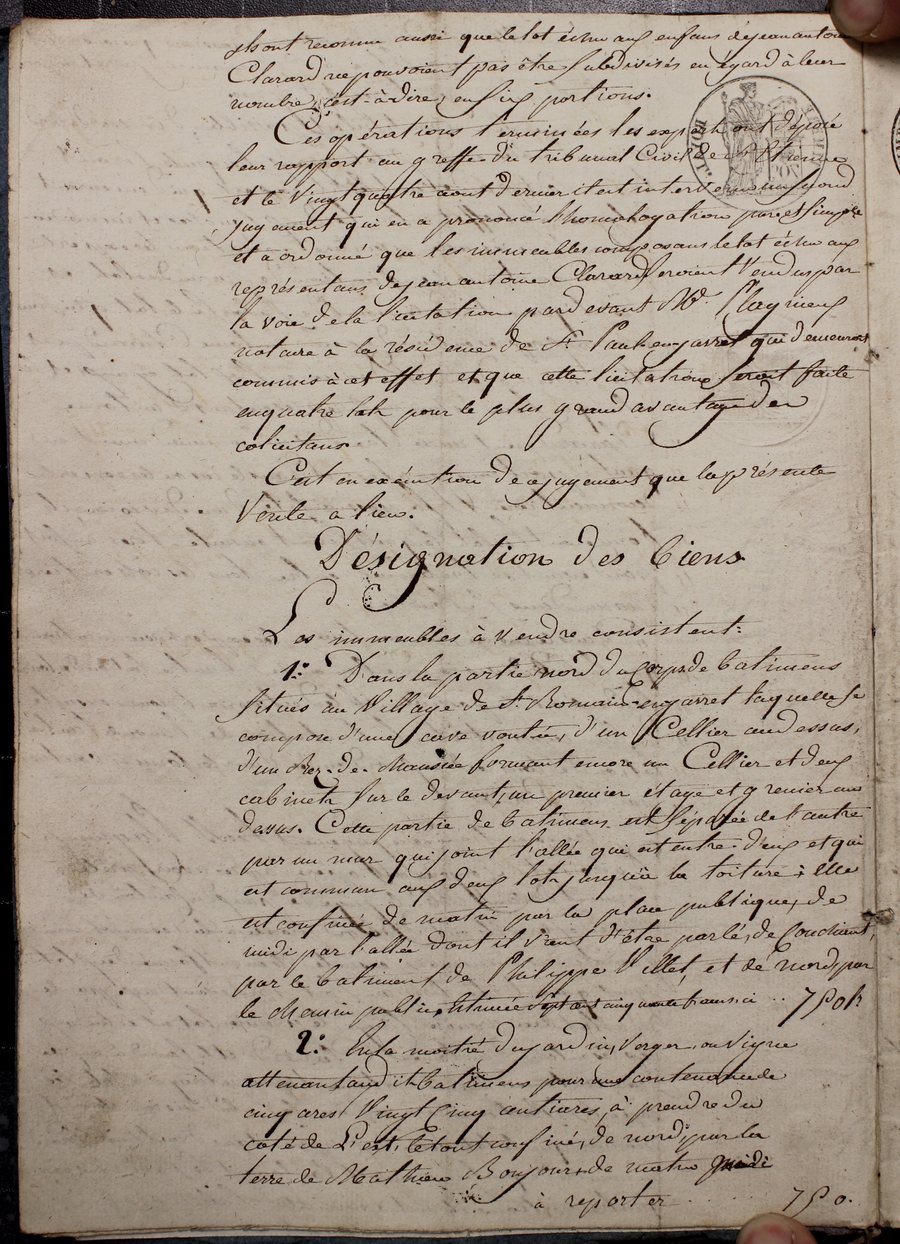 ils ont reconnu aussi que le lot échu aux enfans de jean antoine
Clarard ne pouvoient pas être subdivisés en egard à leur
nombre, c'est-à-dire, en six portions.
Ces opérations terminées les experts ont déposé
leur rapport au greffe du tribunal Civil de St Etienne
et le Vingt quatre aout dernier il est intervenu un second
jugement qui en a prononcé l'homologation pure et simple
et a ordonné que les immeubles composans le lot échu aux
représentans de jean antoine Clarard seroient Vendus par
la voie de la licitation pardevant Me Plagnieux
notaire à la résidence de St Paul-en-jarret qui demeuroit
commis à cet effet et que cette licitation seroit faite
en quatre lots pour le plus grand avantage des
colicitans
C'est en exécution de ce jugement que la présente
Vente a lieu.
Désignation des biens
Les immeubles à Vendre consistent:
1.º Dans la partie nord du Corps de batimens
situés au Village de St Romain-en-jarret laquelle se
compose d'une cave voutée, d'un Cellier au dessus,
d'un Rez-de-Chaussée formant encore un Cellier et deux
cabinets sur le devant, un premier étage et grenier au
dessus. Cette partie de batimens est séparée de l'autre
par un mur qui joint l'allée qui est entre d'eux et qui
est commun aux deux lots jusqu'à la toiture; elle
est confinée de matin par la place publique, de
midi par l'allée dont il vient d'être parlé, de Couchant,
par le batiment de Philippe Villet, et de Nord, par
le chemin public, Estimée sept cent cinquante francs ci .. 750 fr
2.º En la moitié du jardin, Verger, ou Vigne
attenant audit batimens pour une contenance de
cinq ares Vingt Cinq centiares, à prendre du
coté de L'est, le tout confiné, de nord, par la
terre de Mathieu Bonjour, de matin
à reporter ..... 750.